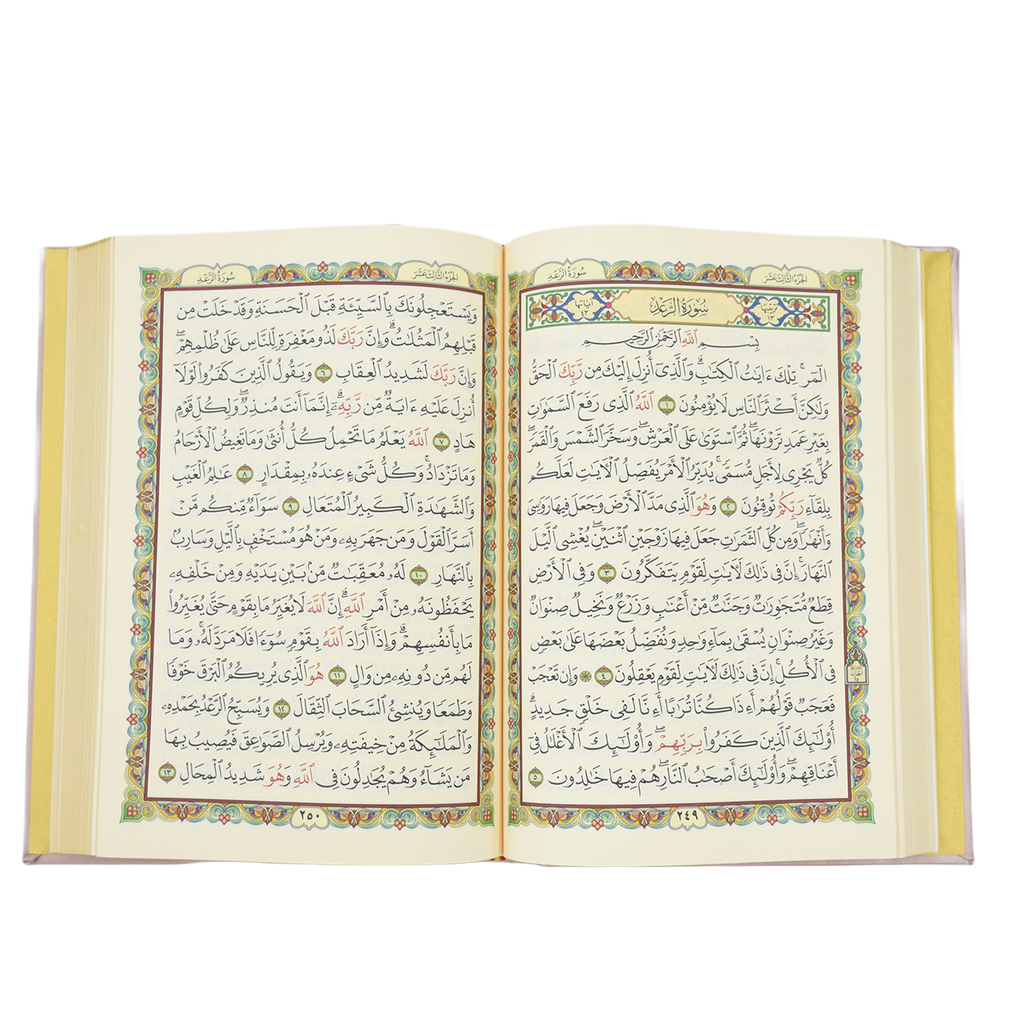 سُورَةُ الرَّعْدِ
الجُزْءُ الثَّالِثَ عَشَرَ
ترتيبها ١٣
سُورَةُ الرَّعْدِ
آياتها ٤٣
بِسْمِ ٱللَّهِ ٱلرَّحْمَٰنِ ٱلرَّحِيمِ
الٓمٓرۚ تِلْكَ ءَايَٰتُ ٱلْكِتَٰبِۗ وَٱلَّذِىٓ أُنزِلَ إِلَيْكَ مِن رَّبِّكَ ٱلْحَقُّ
وَلَٰكِنَّ أَكْثَرَ ٱلنَّاسِ لَا يُؤْمِنُونَ ١ ٱللَّهُ ٱلَّذِى رَفَعَ ٱلسَّمَٰوَٰتِ
بِغَيْرِ عَمَدٍ تَرَوْنَهَاۖ ثُمَّ ٱسْتَوَىٰ عَلَى ٱلْعَرْشِۖ وَسَخَّرَ ٱلشَّمْسَ وَٱلْقَمَرَۖ
كُلٌّ يَجْرِى لِأَجَلٍ مُّسَمًّىۚ يُدَبِّرُ ٱلْأَمْرَ يُفَصِّلُ ٱلْءَايَٰتِ لَعَلَّكُم
بِلِقَآءِ رَبِّكُمْ تُوقِنُونَ ٢ وَهُوَ ٱلَّذِى مَدَّ ٱلْأَرْضَ وَجَعَلَ فِيهَا رَوَٰسِىَ
وَأَنْهَٰرًاۖ وَمِن كُلِّ ٱلثَّمَرَٰتِ جَعَلَ فِيهَا زَوْجَيْنِ ٱثْنَيْنِۖ يُغْشِى ٱلَّيْلَ
ٱلنَّهَارَۚ إِنَّ فِى ذَٰلِكَ لَءَايَٰتٍ لِّقَوْمٍ يَتَفَكَّرُونَ ٣ وَفِى ٱلْأَرْضِ
قِطَعٌ مُّتَجَٰوِرَٰتٌ وَجَنَّٰتٌ مِّنْ أَعْنَٰبٍ وَزَرْعٌ وَنَخِيلٌ صِنْوَانٌ
وَغَيْرُ صِنْوَانٍ يُسْقَىٰ بِمَآءٍ وَٰحِدٍ وَنُفَضِّلُ بَعْضَهَا عَلَىٰ بَعْضٍ
فِى ٱلْأُكُلِۚ إِنَّ فِى ذَٰلِكَ لَءَايَٰتٍ لِّقَوْمٍ يَعْقِلُونَ ٤ ۞ وَإِن تَعْجَبْ
فَعَجَبٌ قَوْلُهُمْ أَءِذَا كُنَّا تُرَٰبًا أَءِنَّا لَفِى خَلْقٍ جَدِيدٍۗ
أُو۟لَٰٓئِكَ ٱلَّذِينَ كَفَرُوا۟ بِرَبِّهِمْۖ وَأُو۟لَٰٓئِكَ ٱلْأَغْلَٰلُ فِىٓ
أَعْنَاقِهِمْۖ وَأُو۟لَٰٓئِكَ أَصْحَٰبُ ٱلنَّارِۖ هُمْ فِيهَا خَٰلِدُونَ ٥
٢٤٩
سُورَةُ الرَّعْدِ
الجُزْءُ الثَّالِثَ عَشَرَ
وَيَسْتَعْجِلُونَكَ بِٱلسَّيِّئَةِ قَبْلَ ٱلْحَسَنَةِ وَقَدْ خَلَتْ مِن
قَبْلِهِمُ ٱلْمَثُلَٰتُۗ وَإِنَّ رَبَّكَ لَذُو مَغْفِرَةٍ لِّلنَّاسِ عَلَىٰ ظُلْمِهِمْۖ
وَإِنَّ رَبَّكَ لَشَدِيدُ ٱلْعِقَابِ ٦ وَيَقُولُ ٱلَّذِينَ كَفَرُوا۟ لَوْلَآ
أُنزِلَ عَلَيْهِ ءَايَةٌ مِّن رَّبِّهِۦٓۗ إِنَّمَآ أَنتَ مُنذِرٌۖ وَلِكُلِّ قَوْمٍ
هَادٍ ٧ ٱللَّهُ يَعْلَمُ مَا تَحْمِلُ كُلُّ أُنثَىٰ وَمَا تَغِيضُ ٱلْأَرْحَامُ
وَمَا تَزْدَادُۖ وَكُلُّ شَىْءٍ عِندَهُۥ بِمِقْدَارٍ ٨ عَٰلِمُ ٱلْغَيْبِ
وَٱلشَّهَٰدَةِ ٱلْكَبِيرُ ٱلْمُتَعَالِ ٩ سَوَآءٌ مِّنكُم مَّنْ
أَسَرَّ ٱلْقَوْلَ وَمَن جَهَرَ بِهِۦ وَمَنْ هُوَ مُسْتَخْفٍۭ بِٱلَّيْلِ وَسَارِبٌۢ
بِٱلنَّهَارِ ١٠ لَهُۥ مُعَقِّبَٰتٌ مِّنۢ بَيْنِ يَدَيْهِ وَمِنْ خَلْفِهِۦ
يَحْفَظُونَهُۥ مِنْ أَمْرِ ٱللَّهِۗ إِنَّ ٱللَّهَ لَا يُغَيِّرُ مَا بِقَوْمٍ حَتَّىٰ يُغَيِّرُوا۟
مَا بِأَنفُسِهِمْۗ وَإِذَآ أَرَادَ ٱللَّهُ بِقَوْمٍ سُوٓءًا فَلَا مَرَدَّ لَهُۥۚ وَمَا
لَهُم مِّن دُونِهِۦ مِن وَالٍ ١١ هُوَ ٱلَّذِى يُرِيكُمُ ٱلْبَرْقَ خَوْفًا
وَطَمَعًا وَيُنشِئُ ٱلسَّحَابَ ٱلثِّقَالَ ١٢ وَيُسَبِّحُ ٱلرَّعْدُ بِحَمْدِهِۦ
وَٱلْمَلَٰٓئِكَةُ مِنْ خِيفَتِهِۦ وَيُرْسِلُ ٱلصَّوَٰعِقَ فَيُصِيبُ بِهَا
مَن يَشَآءُ وَهُمْ يُجَٰدِلُونَ فِى ٱللَّهِ وَهُوَ شَدِيدُ ٱلْمِحَالِ ١٣
٢٥٠